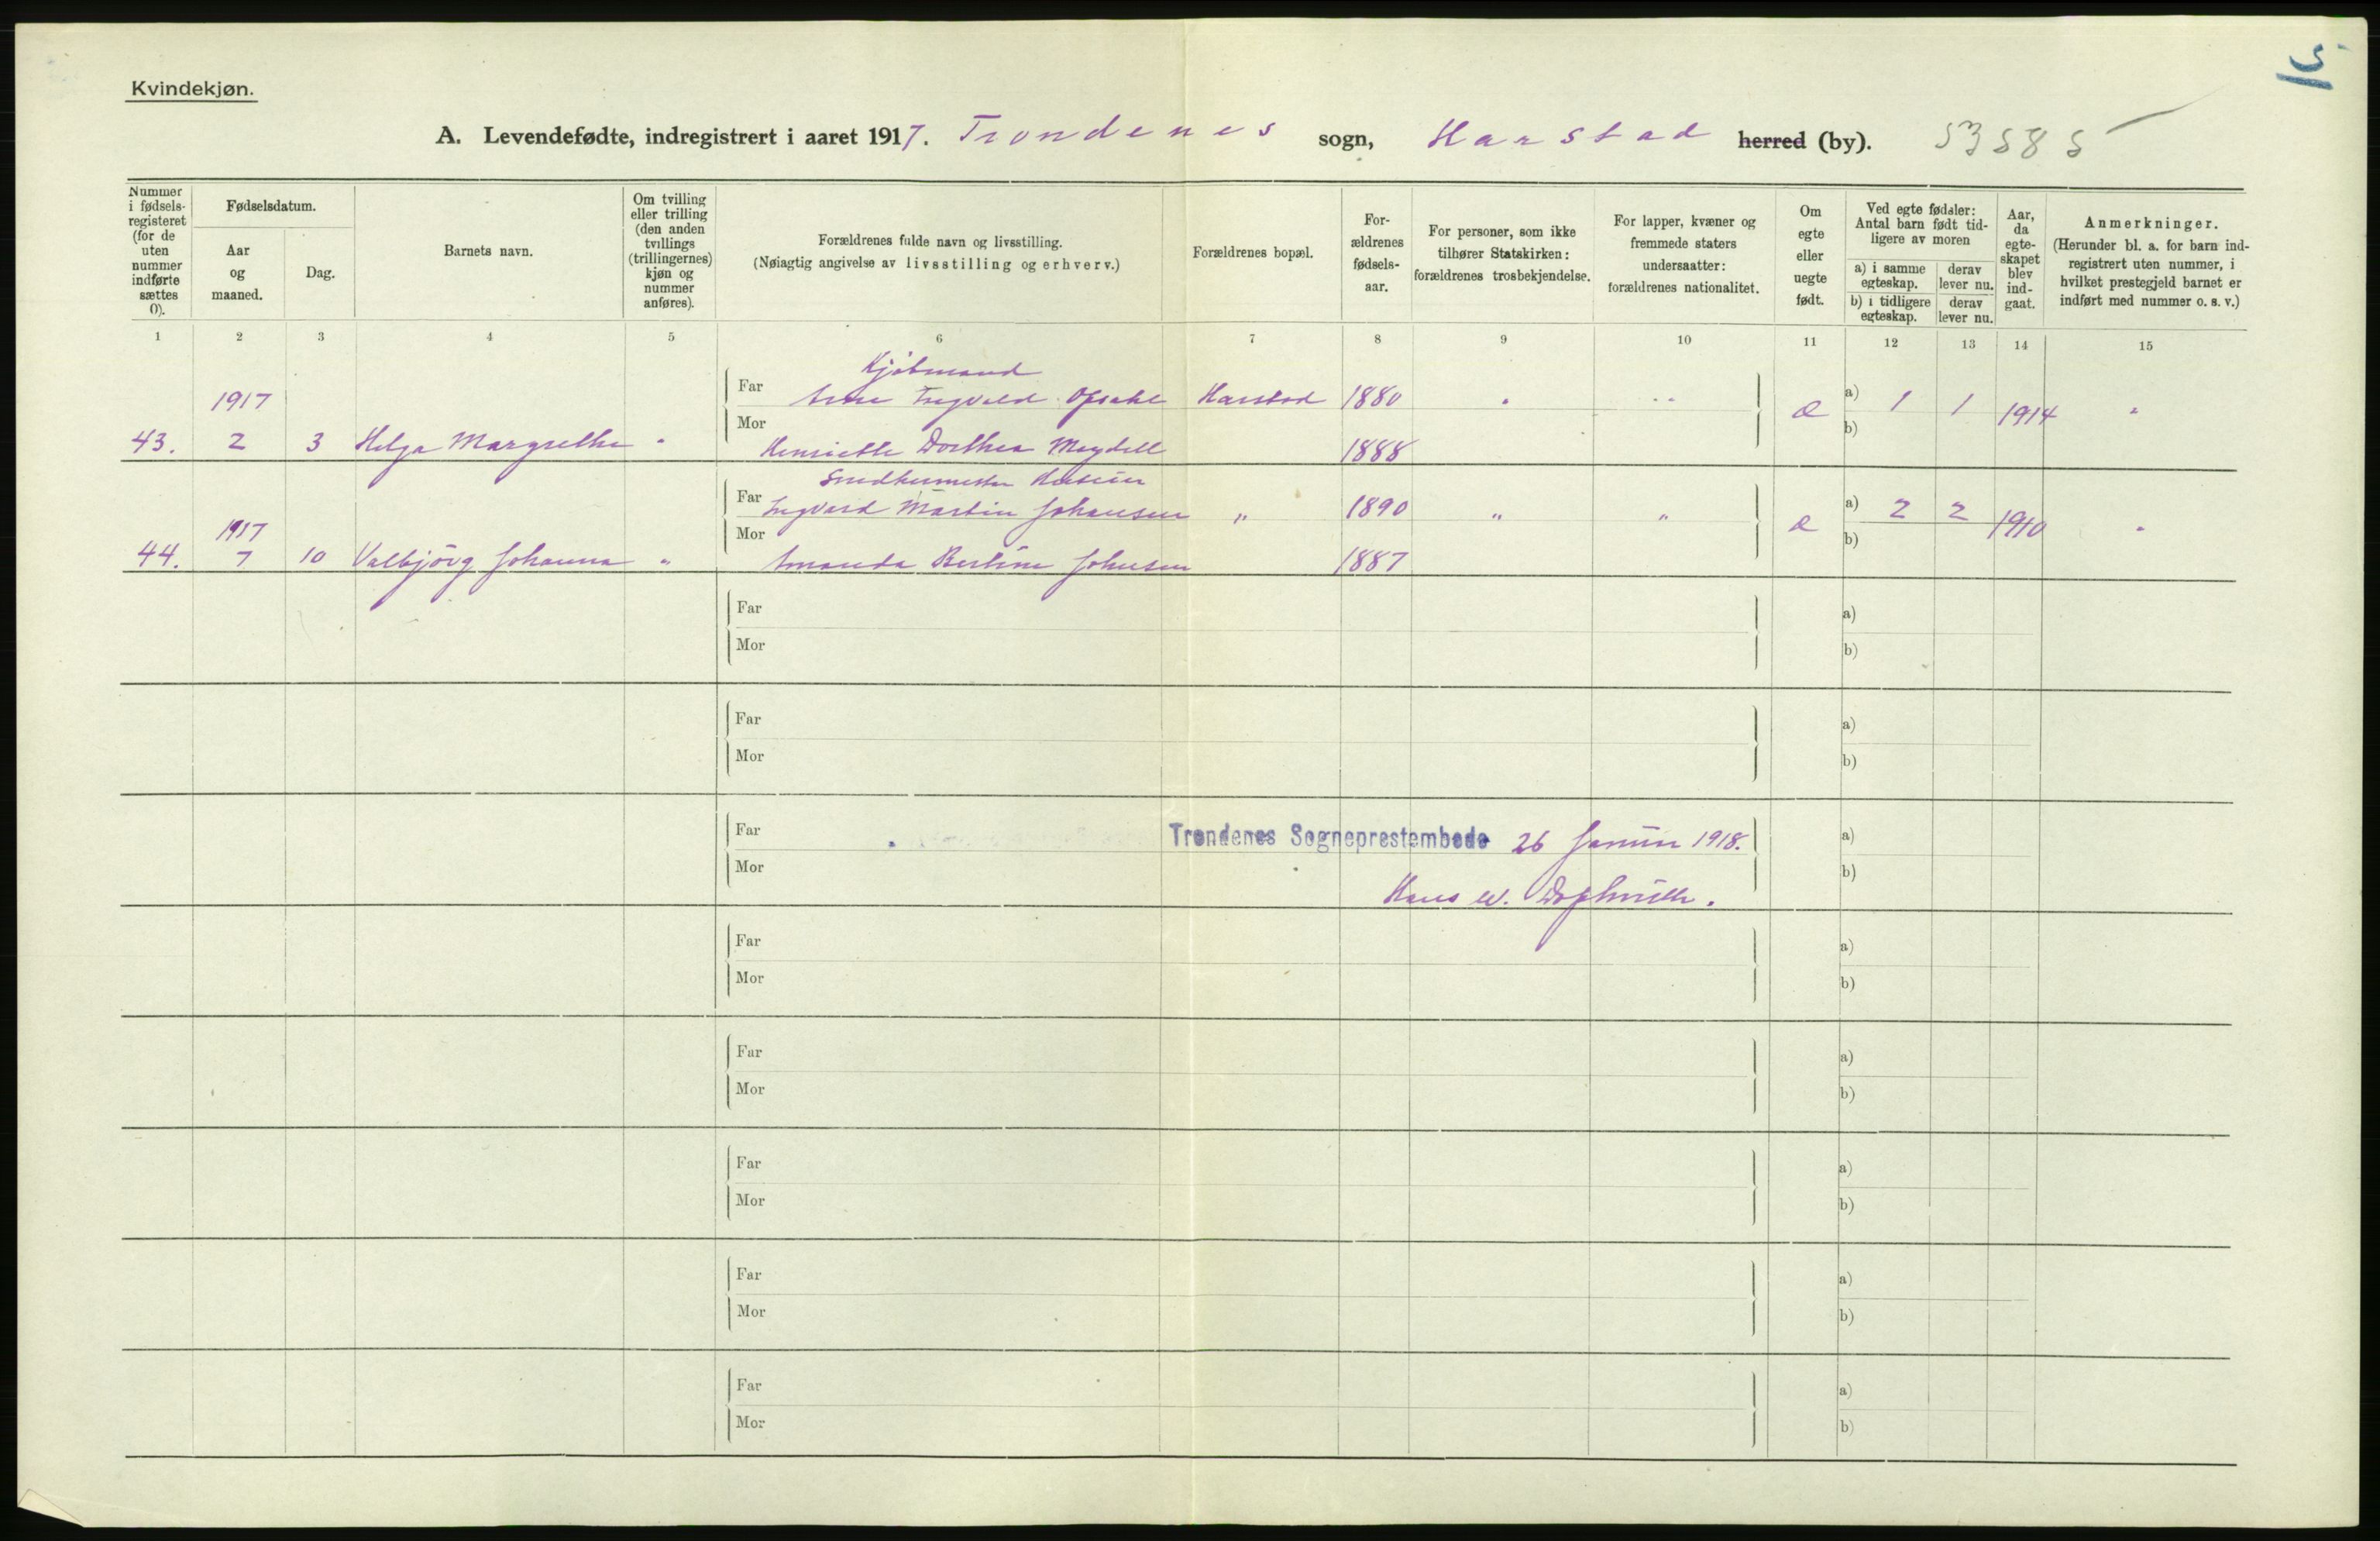 15
Kvindekjøn.
A. Levendefødte, indregistrert i aaret 1917. Trondenes sogn, Harstad herred (by). 53585
Nummer i fødsels-registeret (for de uten nummer indførte sættes 0).
Fødselsdatum.
Aar og maaned.
Dag.
Barnets navn.
Om tvilling eller trilling (den anden tvillings (trillingernes) kjøn og nummer anføres).
Forældrenes fulde navn og livsstilling.
(Nøiagtig angivelse av livsstilling og erhverv.)
Forældrenes bopæl.
For-ældrenes fødsels-aar.
For personer, som ikke tilhører Statskirken: forældrenes trosbekjendelse.
For lapper, kvæner og fremmede staters undersaatter: forældrenes nationalitet.
Om egte eller uegte født.
Ved egte fødsler: Antal barn født tid-ligere av moren
a) i samme egteskap.
derav lever nu.
b) i tidligere egteskap.
derav lever nu.
Aar, da egte-skapet blev ind-gaat.
Anmerkninger.
(Herunder bl. a. for barn ind-registrert uten nummer, i hvilket prestegjeld barnet er indført med nummer o. s. v.)
1 2 3 4 5 6 7 8 9 10 11 12 13 14 15
Kjöbmand
1917 Far Arne Ingvald Opsahl Harstad 1880 " " e a) 1 1 1914 "
43. 2 3 Helga Margrethe " Mor Henriette Dorthea 1888 b)
Far Ingvard Martin Johansen " 1890 " " e a) 2 2 1910 "
1917
44. 7 10 Valbjörg Johanna " Mor Amanda Bertine Johnsen 1887 b)
Far a)
Mor b)
Far a)
Mor b)
Far Trondenes Sogneprestembede 26 Januar 1918. a)
Mor b)
Hans W.
Far a)
Mor b)
Far a)
Mor b)
Far a)
Mor b)
Far a)
Mor b)
Far a)
Mor b)